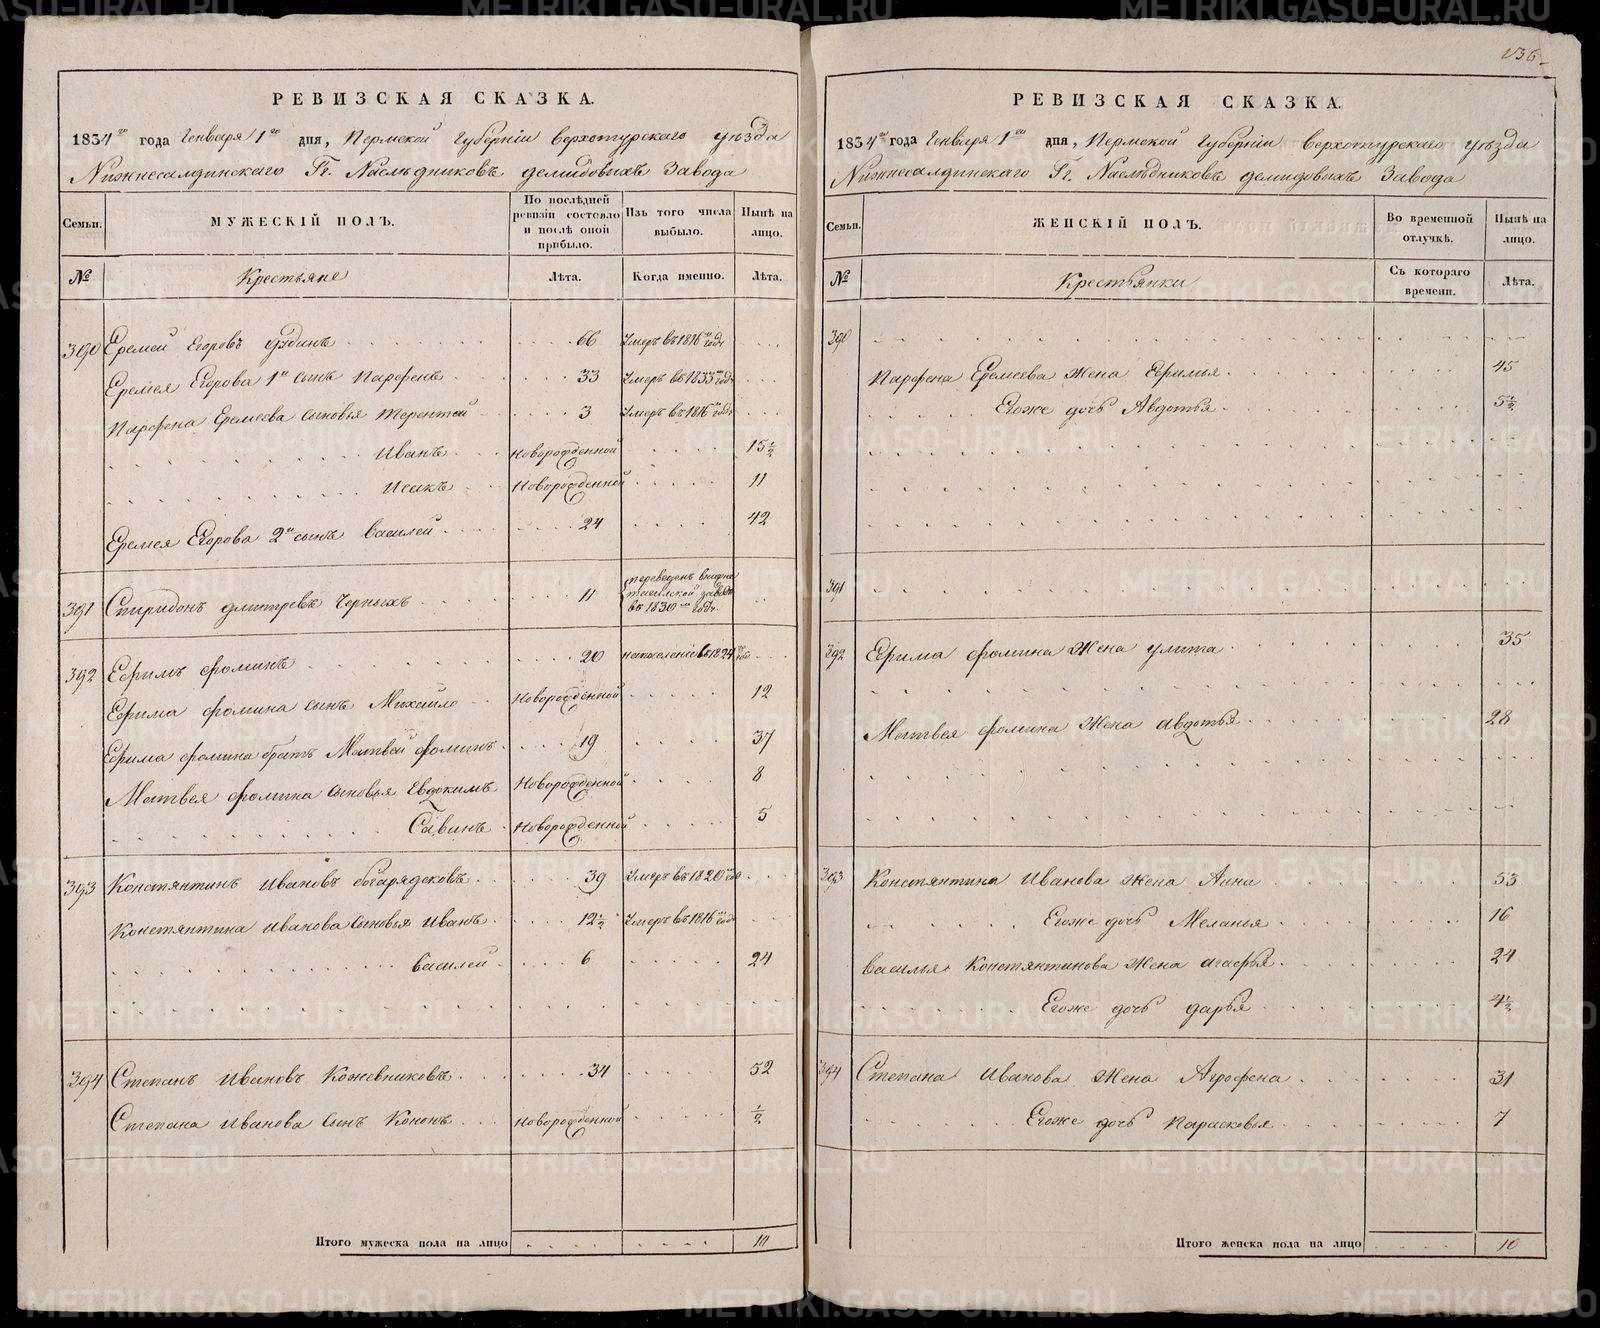 РЕВИЗСКАЯ СКАЗКА.
1834го года Генваря 1го дня, Пермской Губернiи верхотурскаго уѣзда
Нижнесалдинскаго Гг. Наслѣдниковъ демидовыхъ Завода
Семьи.
МУЖЕСКIЙ ПОЛЪ.
По послѣдней ревизiи состояло и послѣ оной прибыло.
Изъ того числа выбыло.
Нынѣ на лицо.
№
Крестьяне
Лѣта.
Когда именно.
Лѣта.
390 Еремей Егоровъ 66 Умеръ въ 1816м годѵ
Еремея Егорова 1й сынъ Парфенъ 33 Умеръ въ 1833м годѵ
Парфена Еремеева сыновья Терентей 3 Умеръ въ 1816м годѵ
Иванъ Новорожденной 15½
Исакъ Новорожденной 11
Еремея Егорова 2й сынъ василей 24 42
391 Спиридонъ дмитревъ Черныхъ 11 переведенъ в нижне тагилской заводъ въ 1830м годѵ
392 Ефримъ фоминъ 20 на поселенiе в 1824м год
Ефрима фомина сынъ Михайло Новорожденной 12
Ефрима фомина братъ Матвей фоминъ 19 37
Матвея фомина сыновья Евдокимъ Новорожденной 8
Савинъ Новорожденной 5
393 Констянтинъ Ивановъ богарядсковъ 39 Умеръ въ 1820м год
Констянтина Иванова сыновья Иванъ 12½ Умеръ въ 1816м годѵ
василей 6 24
394 Степанъ Ивановъ Кожевниковъ 34 52
Степана Иванова сынъ Кононъ Новорожденной ½
Итого мужеска пола на лицо 10
136
РЕВИЗСКАЯ СКАЗКА.
1834го года Генваря 1го дня, Пермской Губернiи верхотурскаго уѣзда
Нижнесалдинскаго Гг. Наслѣдниковъ демидовыхъ Завода
Семьи.
ЖЕНСКIЙ ПОЛЪ.
Во временной отлучкѣ.
Нынѣ на лицо.
№
Крестьянки
Съ котораго времени.
Лѣта.
390
Парфена Еремеева жена Ефимия 45
Егоже дочь Авдотья 5½
391
392 Ефрима фомина жена улита 35
Матвея фомина жена авдотья 28
393 Констянтина Иванова жена Анна 53
Егоже дочь Меланья 16
василья Констянтинова жена агафья 24
Егоже дочь дарья 4½
394 Степана Иванова жена Агрофена 31
Егоже дочь Парасковья 7
Итого женска пола на лицо 10
METRIKI.GASO-URAL.RU